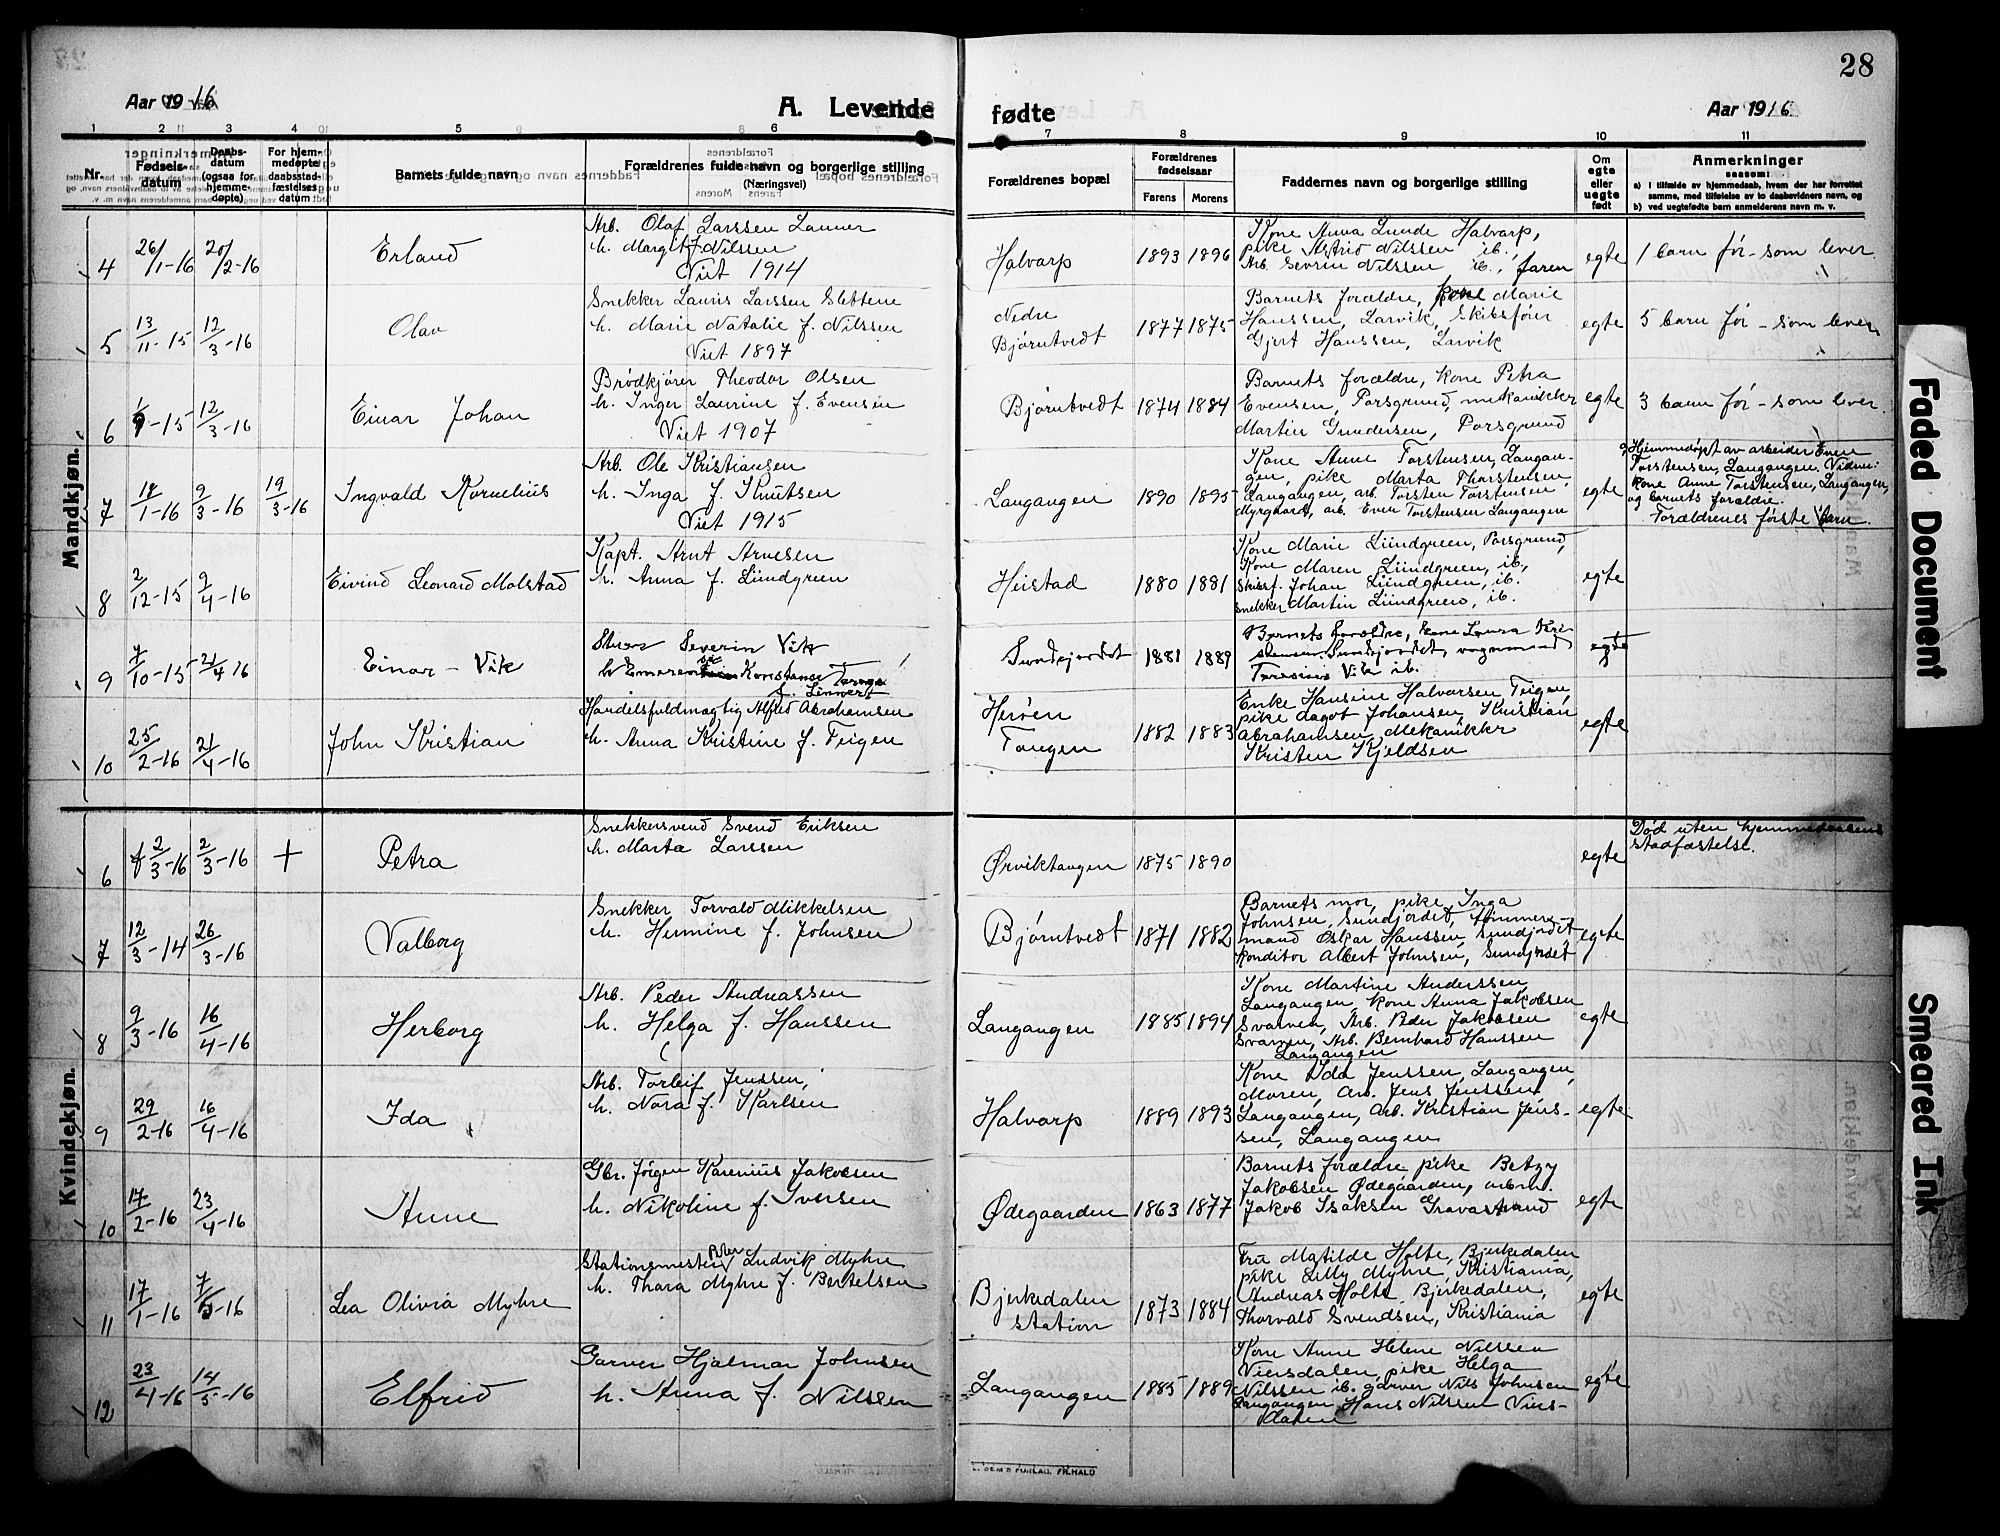 28
Aar 1916
A. Levende
fødte
Aar 1916
1 2 3 4 5 6 7 8 9 10 11
Nr.
Fødsels-
datum
Daabs-
datum
(ogsaa for
hjemme-
døpte)
For hjem-
medøpte
daabsstad-
fæstelses
datum
Barnets fulde navn
Forældrenes fulde navn og borgerlige stilling
(Næringsvei)
Forældrenes bopæl
Forældrenes
fødselsaar
Farens Morens
Faddernes navn og borgerlige stilling
Om
egte
eller
uegte
født
Anmerkninger
saasom:
a) i tilfælde av hjemmedaab, hvem der har forrettet
samme, med tilføielse av to daabsvidners navn, og
b) ved uegtefødte barn anmelderens navn m. v.
Mandkjøn.
4
26/1-16
20/2-16
Erland
Arb. Olaf Larssen Lanner
h. Margit f. Nilssen
Viet 1914
Halvarp
1893 1896
Kone Anna Lunde Halvarp,
pike Astrid Nilssen ib.,
Arb. Sevrin Nilssen ib., faren
egte
1 barn før - som lever
5
13/11-15
12/3-16
Olav
Snekker Lauris Larssen Slettene
h. Marie Natalie f. Nilssen
Viet 1897
Nedre
Bjørntvedt
1877 1875
Barnets forældre, kone Marie
Hanssen, Larvik, Skibsfører
Gjert Hanssen, Larvik
egte
5 barn før - som lever
6
1/9-15
12/3-16
Einar Johan
Brödkjörer Theodor Olsen
h. Inger Laurine f. Evensen
Viet 1907
Bjørntvedt
1874 1884
Barnets forældre, kone Petra
Evensen, Porsgrund, mekanikker
Martin Gundersen, Porsgrund
egte
3 barn før - som lever.
7
18/1-16
9/3-16
19/3-16
Ingvald Kornelius
Arb. Ole Kristiansen
h. Inga f. Knutsen
Viet 1915
Langangen
1890 1895
Kone Anne Torstensen, Langan-
gen, pike Marta Thorstensen,
Langangen, arb. Torsten Torstensen
Myrgaard, arb. Even Torstensen Langangen
egte
Hjemmedøpt av arbeider Even
Torstensen, Langangen. Vidner:
kone Anne Torstensen, Langangen,
og barnets forældre.
Forældrenes første barn.
8
2/12-15
9/4-16
Eivind Leonard Molstad
Kapt. Arnt Arnesen
h. Anna f. Lündgreen
Heistad
1880 1881
Kone Marie Lündgreen, Porsgrund,
Kone Maren Lündgreen, ib.,
Skibsf. Johan Lündgreen, ib.
snekker Martin Lündgreen, ib.
egte
9
7/10-15
21/4-16
Einar - Vik
Severin Vik
Konstanse
f. Linnert
Sundjordet
1881 1889
Barnets foreldre, kone Laura Kri-
stensen Sundjordet, vognmand
Vik ib.
egte
10
25/2-16
21/4-16
John Kristian
Handelsfuldmægtig Alfred Abrahamsen
h. Anna Kristine f. Teigen
Herøen
Tangen
1882 1883
Enke Hansine Halvorsen Teigen,
pike Dagot Johansen, Kristian
Abrahamsen, Mekanikker
Kristen Kjeldsen
egte
Kvindekjøn.
6
2/3-16
2/3-16
+
Petra
Snekkersvend Svend Eriksen
h. Marta Larssen
Ørviktangen
1875 1890
egte
Død uten hjemmedaabens
stadfæstelse.
7
12/3-14
26/3-16
Valborg
Snekker Torvald Mikkelsen
h. Hermine f. Johnsen
Bjørntvedt
1871 1882
Barnets mor, pike Inga
Johnsen, Sundjordet, tömmer-
mand Oskar Hanssen, Sundjordet
konditor Albert Johnsen, Sundjordet
egte
8
9/3-16
16/4-16
Herborg
Arb. Peder Andreassen
h. Helga f. Hanssen
Langangen
1885 1894
Kone Martine Anderssen
Langangen, kone Anna Jakobsen
Svarven, Arb. Peder Jakobsen
Svarven, Arb. Bernhard Hanssen
Langangen
egte
9
29/2-16
16/4-16
Ida
Arb. Torleif Jenssen,
h. Nora f. Karlsen
Halvarp
1889 1893
Kone Ida Jenssen, Langangen,
Moren, Arb. Jens Jenssen
Langangen, Arb. Kristian Jens-
sen, Langangen
egte
10
17/2-16
23/4-16
Anne
Gbr. Jørgen Karenius Jakobsen
h. Nikoline f. Iversen
Ødegaarden
1863 1877
Barnets forældre pike Betzy
Jakobsen Ødegaarden, arbm.
Jakob Isaksen Gravastrand
egte
11
17/1-16
7/5-16
Lea Olivia Myhre
Stationsmester Peter Ludvik Myhre
h. Thara Myhre f. Bertelsen
Bjerkedalen
station
1873 1884
Fru Matilde Holte, Bjerkedalen
pike Lilly Myhre, Kristiania,
Andreas Holte Bjerkedalen,
Thorvald Svendsen, Kristiania
egte
12
23/4-16
14/5-16
Elfrid
Garver Hjalmar Johnsen
h. Anna f. Nilssen
Langangen
1885 1889
Kone Anne Helene Nilssen
Viersdalen, pike Helga
Nilssen ib. garver Nils Johnsen
Langangen Hans Nilssen Viers-
dalen
egte
FORLAG, FR.HALD
Faded Document
Smeared Ink